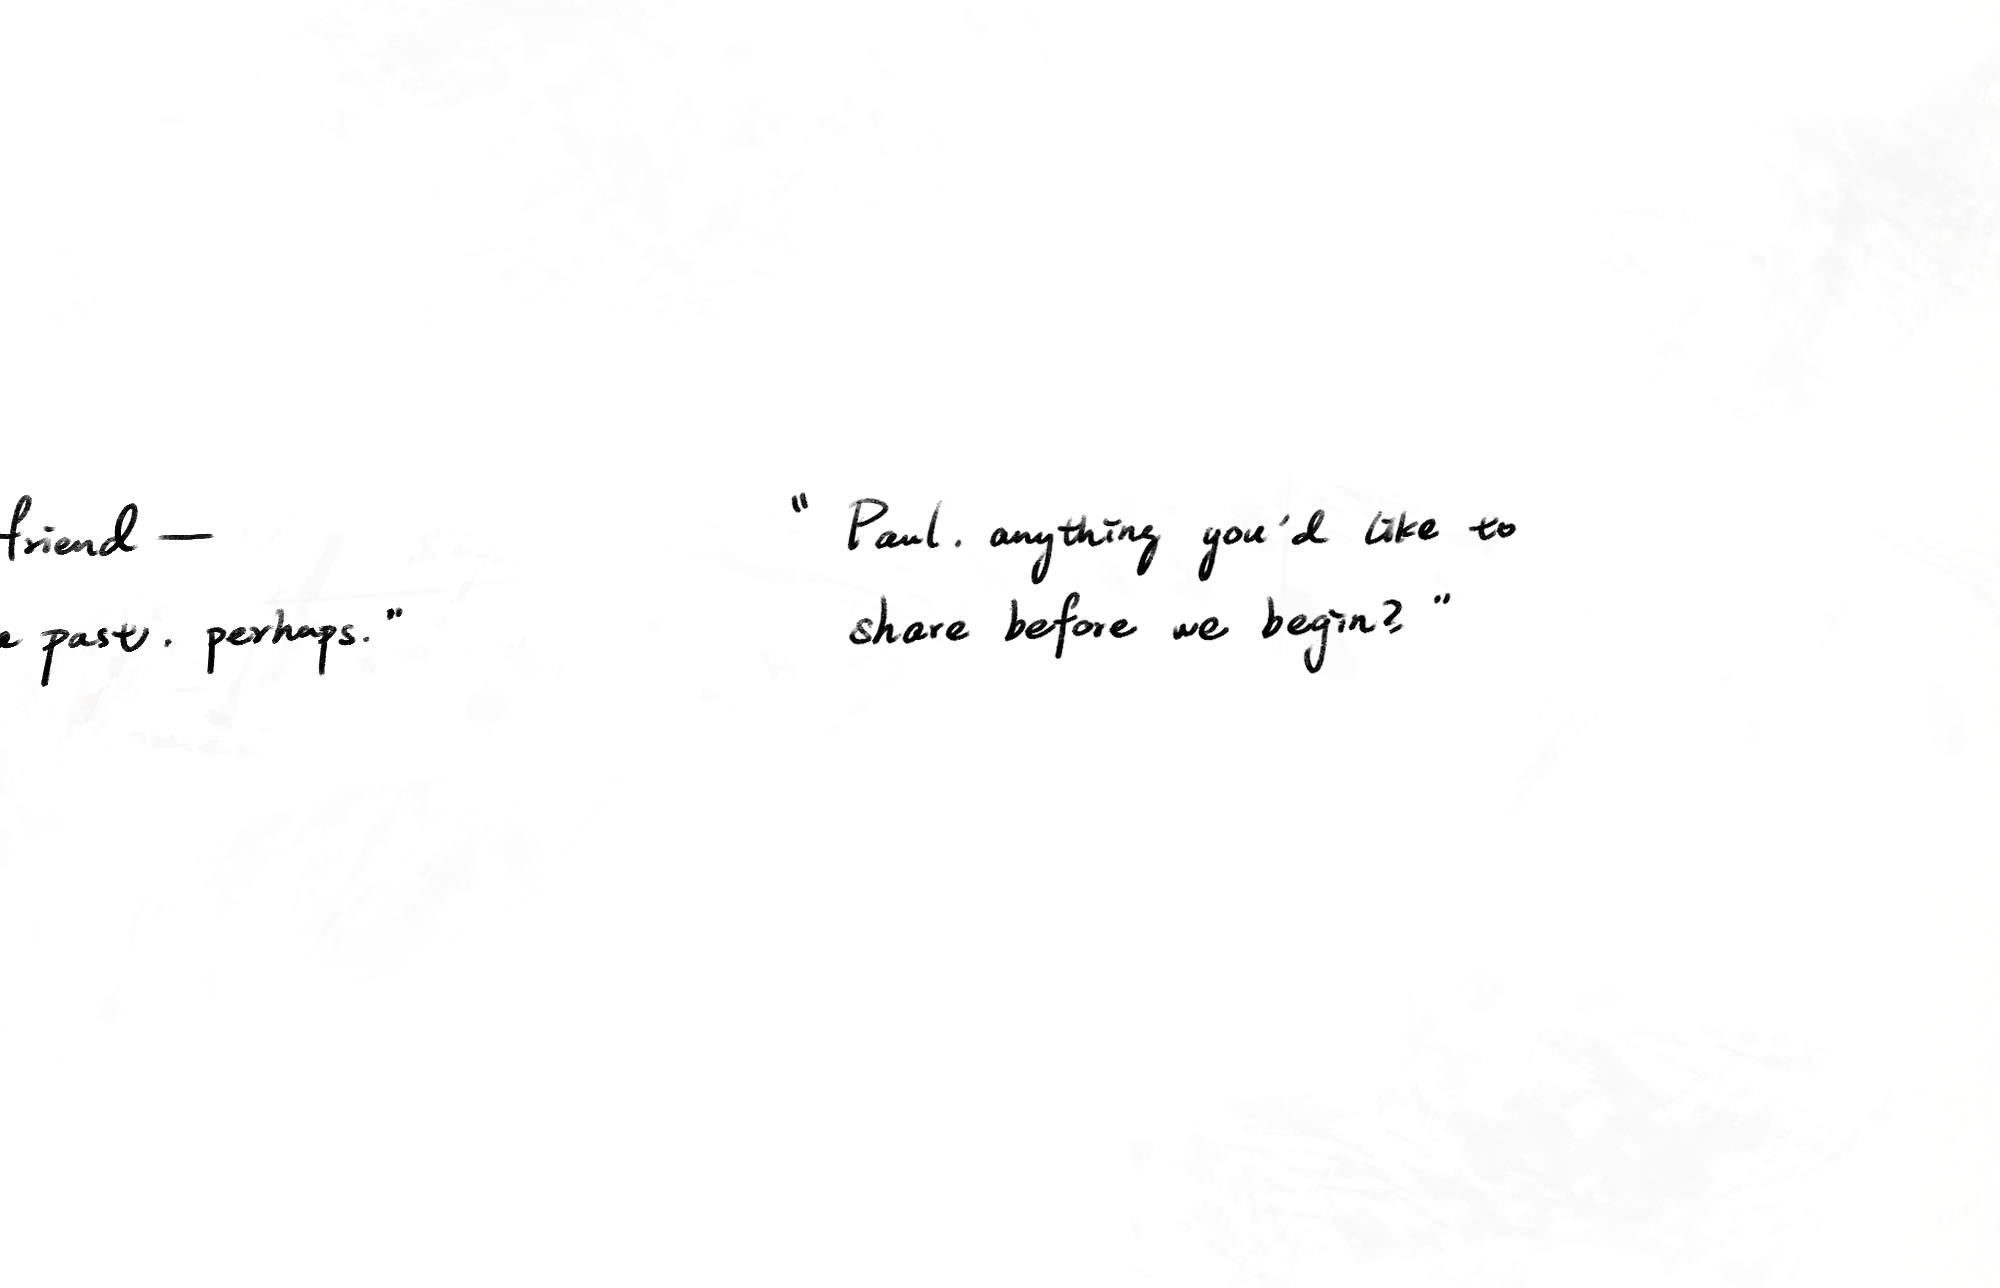 friend —
past. perhaps."
"Paul. anything you'd like to
share before we begin?"